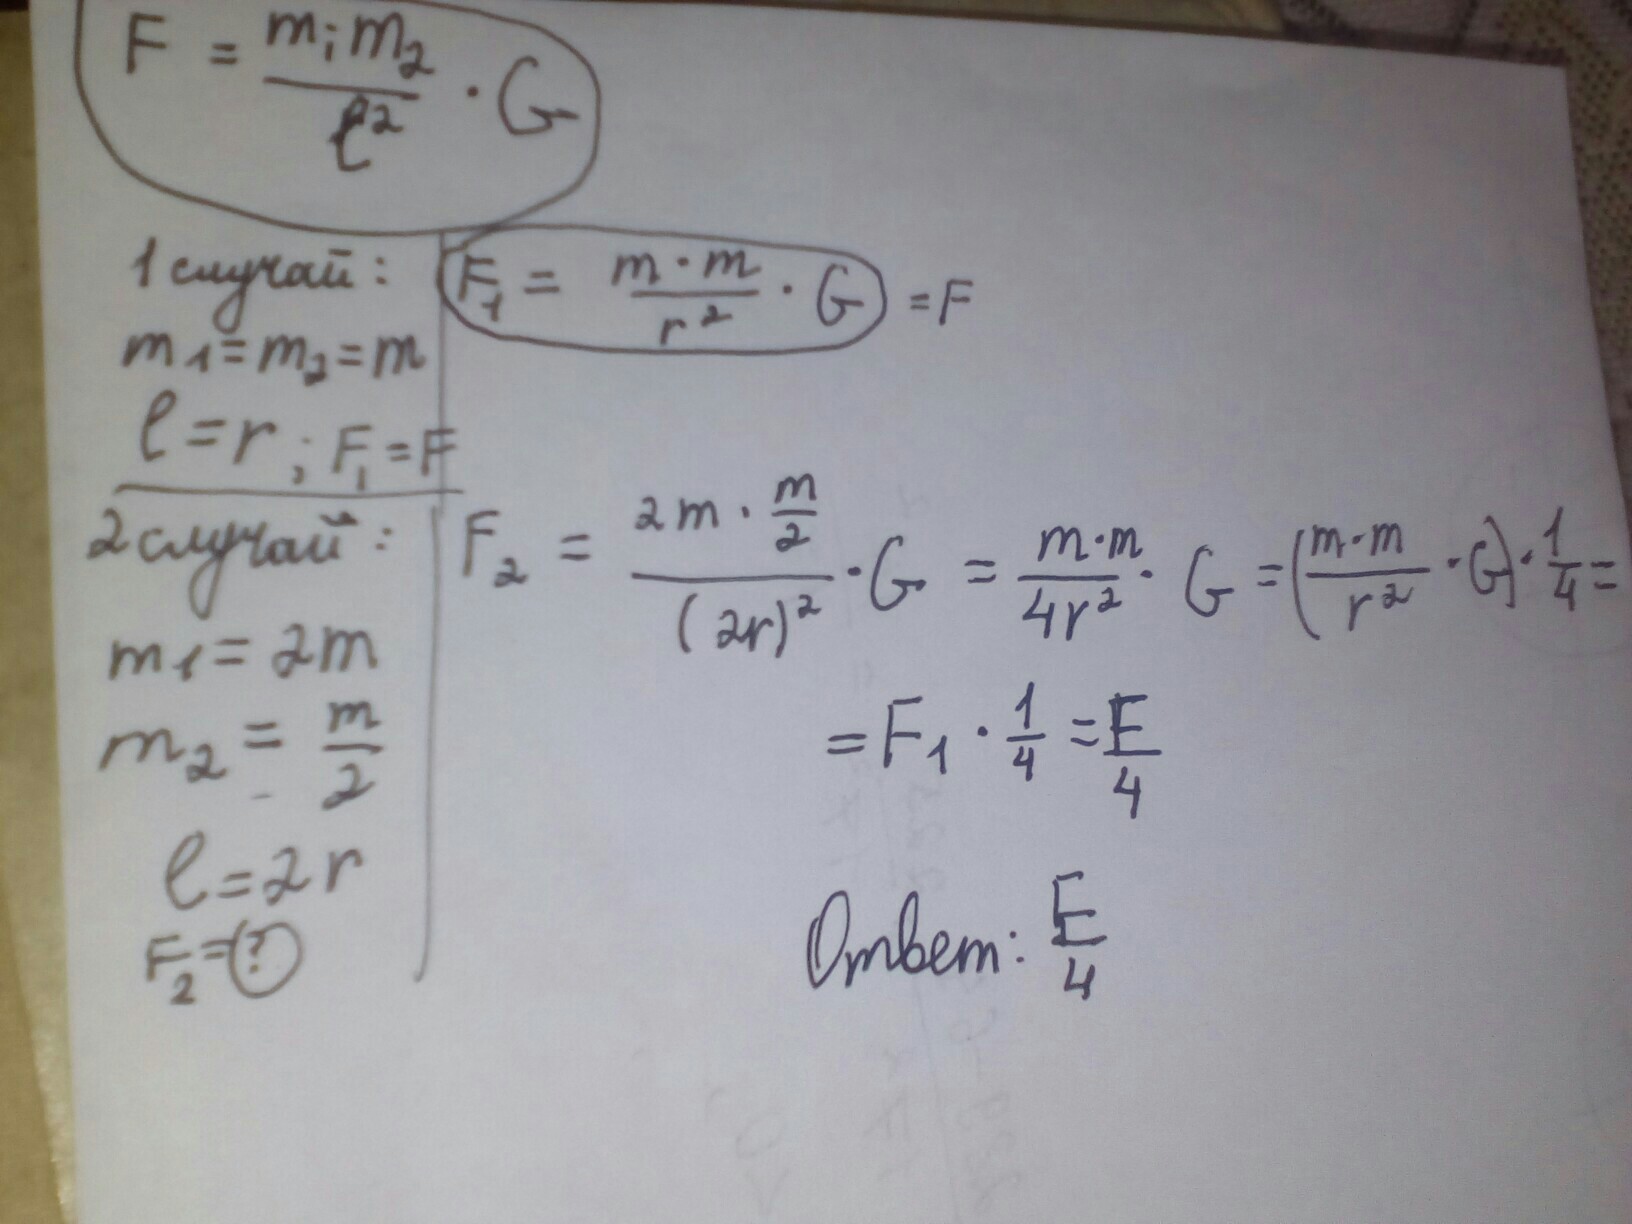 F = m₁m₂/ℓ² · G
1 случай:
m₁=m₂=m
ℓ=r; F₁=F
F₁ = m·m/r² · G = F
2 случай:
m₁=2m
m₂ = m/2
ℓ=2r
F₂=?
F₂ = 2m·m/2/(2r)² · G = m·m/4r² · G = (m·m/r² · G) · 1/4 =
= F₁ · 1/4 = F/4
Ответ: F/4